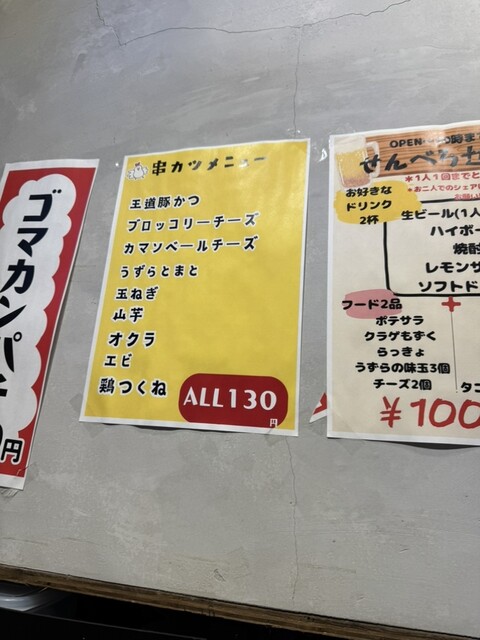 ゴマカンパチ
円
串カツメニュー
王道豚かつ
ブロッコリーチーズ
カマンベールチーズ
うずらとまと
玉ねぎ
山芋
オクラ
エビ
鶏つくね
ALL130
円
OPEN
せんべろセ
*1人1回まで
*お二人でのシェア
お好きな
ドリンク
2杯
生ビール(1人
ハイボー
焼酎
レモンサ
ソフトド
+
フード2品
ポテサラ
クラゲもずく
らっきょ
うずらの味玉3個
チーズ2個
タコ
¥100